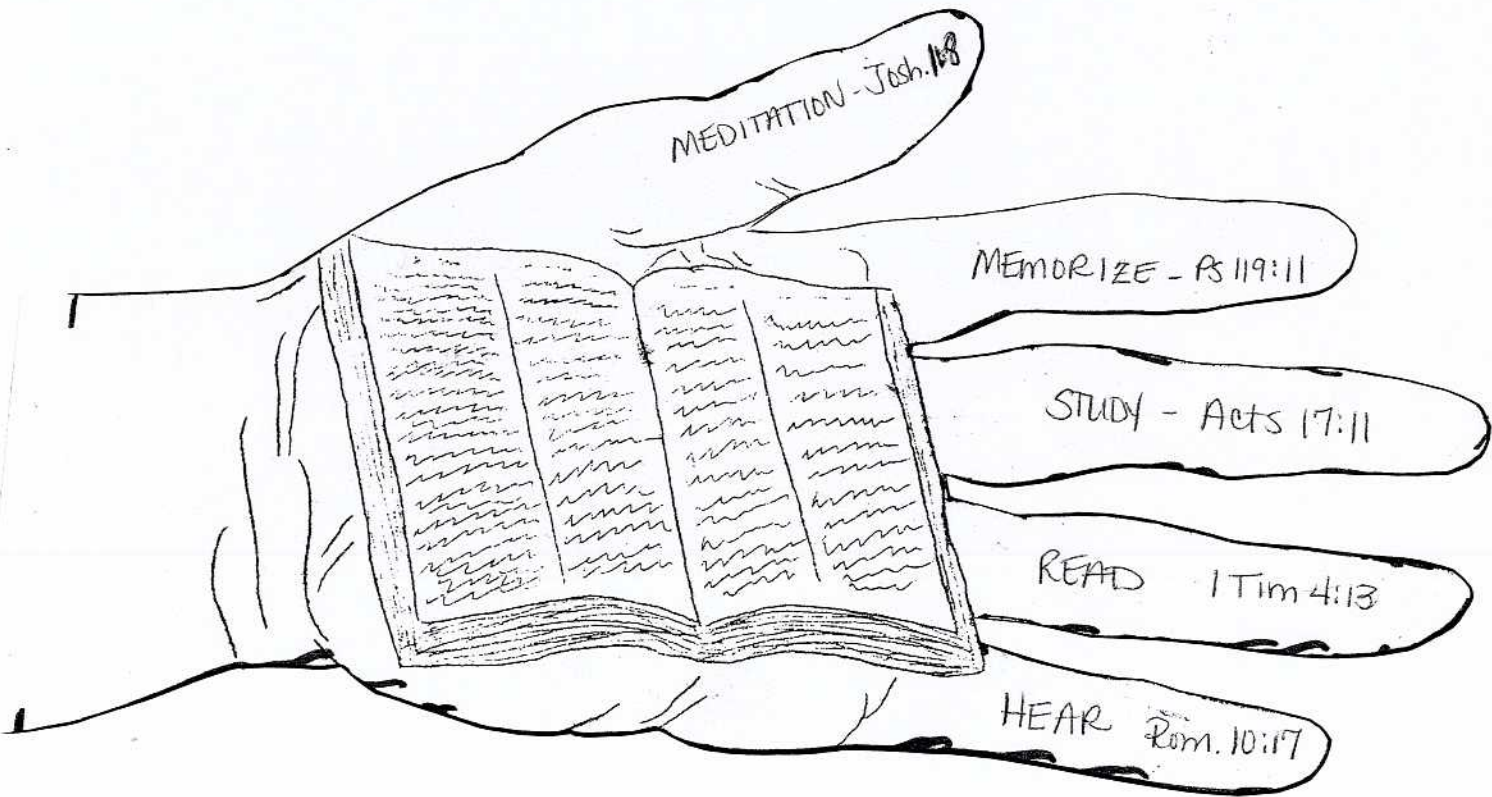 MEDITATION - Josh. 1:8
MEMORIZE - PS 119:11
STUDY - Acts 17:11
READ 1 Tim 4:13
HEAR Rom. 10:17